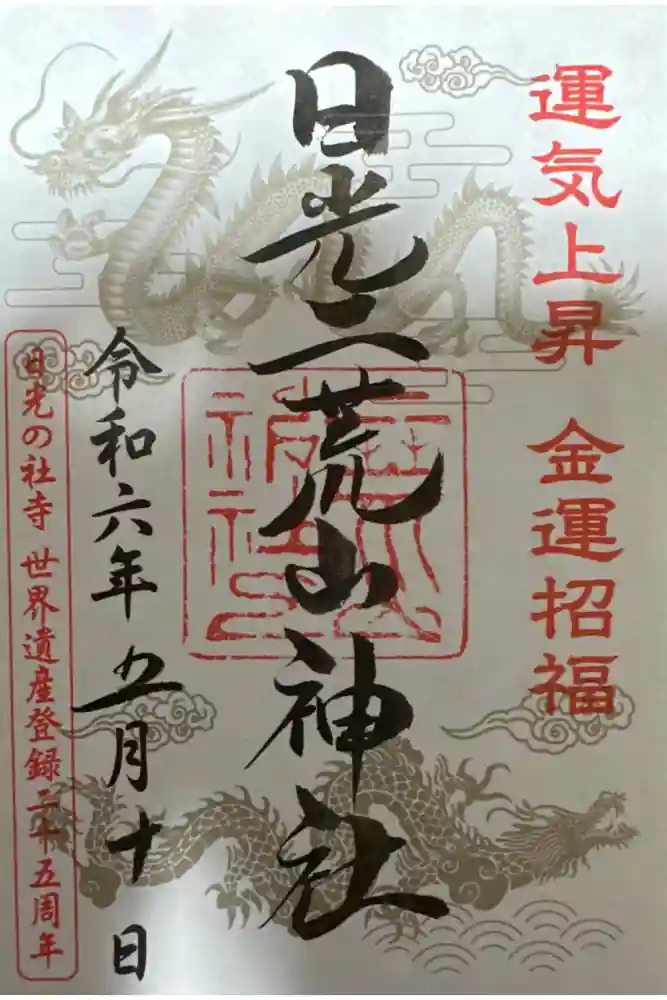 運気上昇 金運招福
日光二荒山神社
令和六年五月十日
日光の社寺 世界遺産登録二十五周年